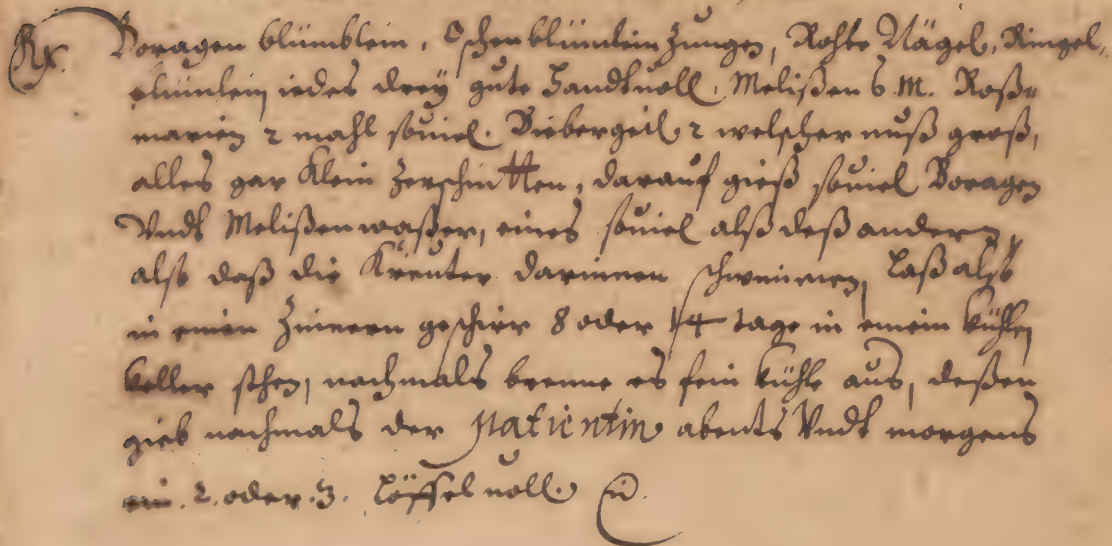 Rx. Boragen blümblein, Ochsenblümlein Zungen, Rohte Nägel, Ringel„
blümlein iedes drey gute Handtvoll, Melißen 6 M. Roß„
marien 2 mahl souiel. Biebergeil 2 welscher nuß groß,
alles gar klein zerschnitten, darauf gieß souiel Boragen
Vndt Melißenwaßer, eines souiel alß deß andern,
alß daß die Kreuter darinnen schwimmen, laß alß
in einen Zinnern geschirr 8 oder 14 tage in einem kühlen
keller stehen, nachmals brenne es fein kühle aus, deßen
gieb nachmals der patientin abents Vndt morgens
ein. 2. oder. 3. Löffel uoll.